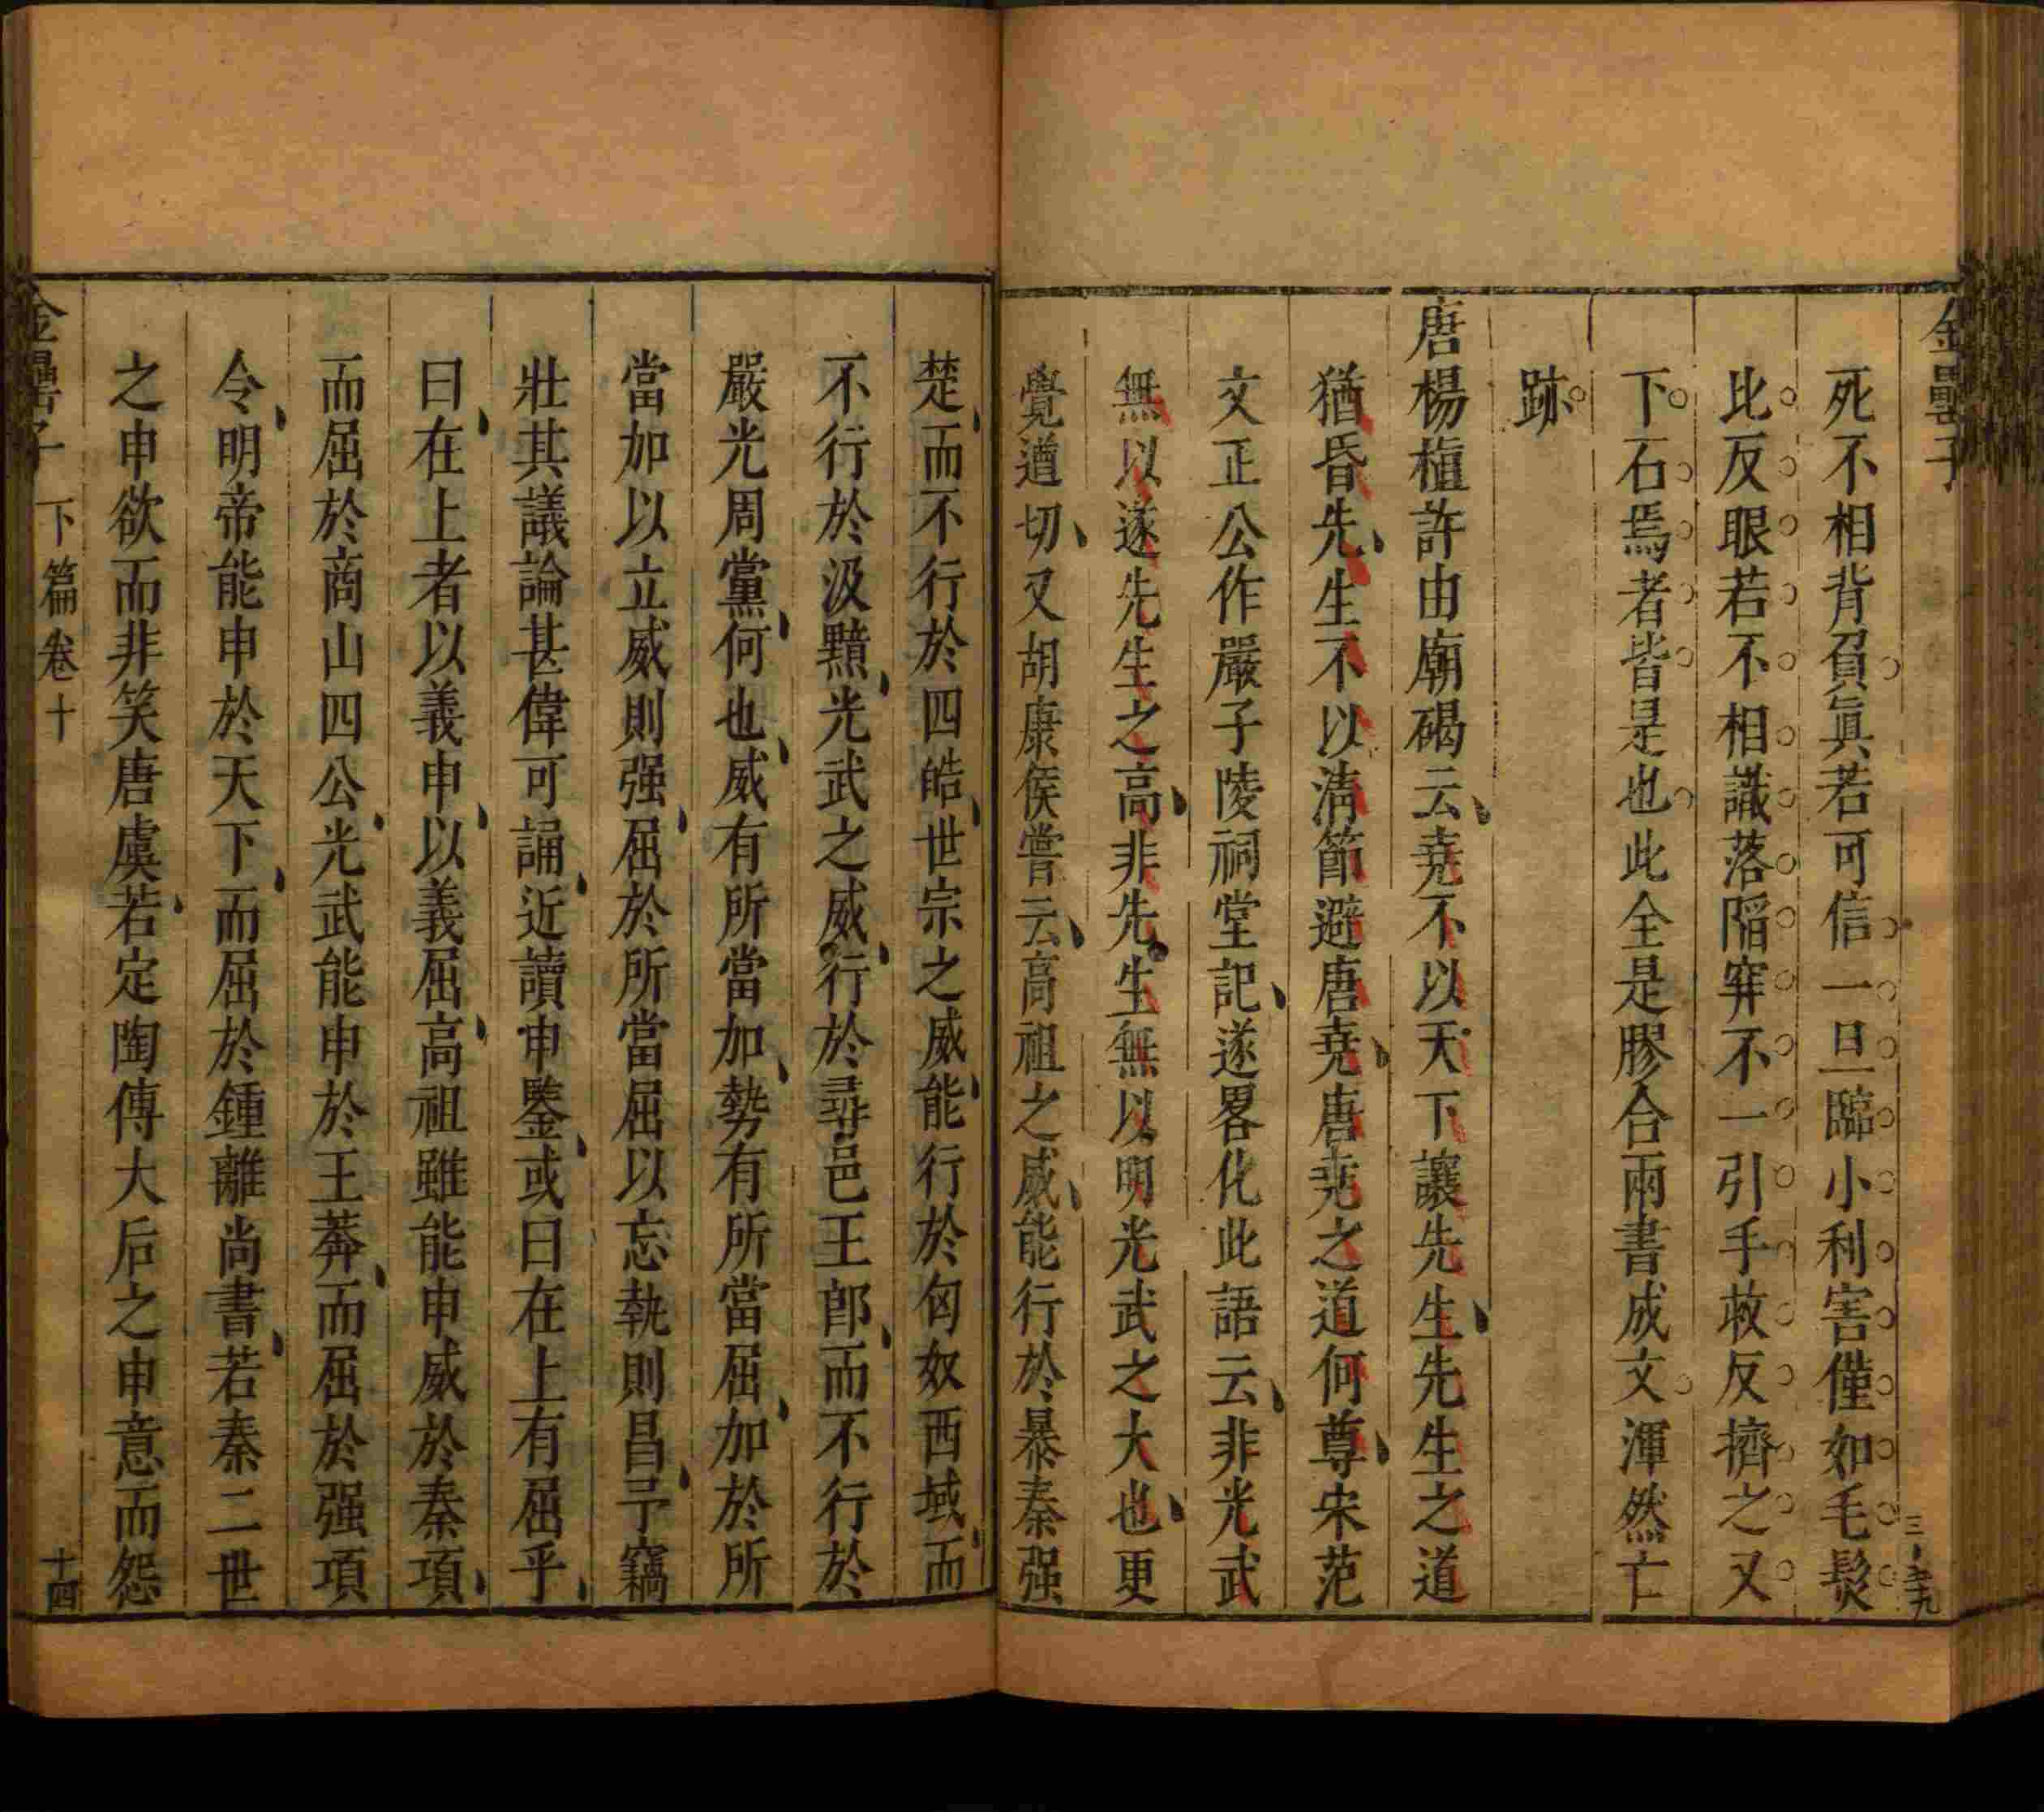 金罍子
三ノ五十九
死不相背負眞若可信一旦臨小利害僅如毛髮
比反眼若不相識落陷穽不一引手救反擠之又
下石焉者皆是也此全是膠合兩書成文渾然亡
跡
唐楊植許由廟碣云堯不以天下讓先生先生之道
猶昏先生不以淸節避唐堯唐堯之道何尊宋范
文正公作嚴子陵祠堂記遂畧化此語云非光武
無以遂先生之高非先生無以明光武之大也更
覺遒切又胡康侯嘗云高祖之威能行於暴秦强
楚而不行於四皓世宗之威能行於匈奴西域而
不行於汲黯光武之威行於尋邑王郎而不行於
嚴光周黨何也威有所當加勢有所當屈加於所
當加以立威則强屈於所當屈以忘執則昌予竊
壯其議論甚偉可誦近讀申鑒或曰在上有屈乎
曰在上者以義申以義屈高祖雖能申威於秦項
而屈於商山四公光武能申於王莽而屈於强項
令明帝能申於天下而屈於鍾離尚書若秦二世
之申欲而非笑唐虞若定陶傅大后之申意而怨
金罍子 下篇卷十 十四